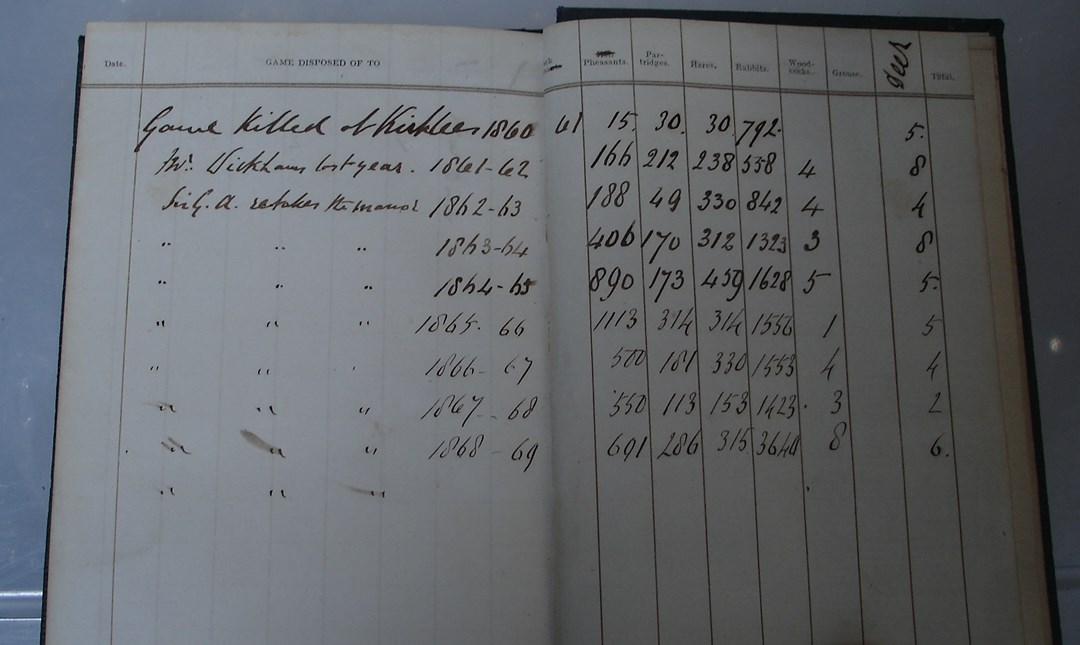 Date. GAME DISPOSED OF TO Pheasants. Par-tridges. Hares. Rabbits. Wood-cocks. Grouse. Deer Total.
Game Killed at Kirklees 1860 61 15. 30. 30. 792. 5.
Mr. Wickhams last year. 1861-62 166 212 238 558 4 8
Sir G. A. retakes the manor 1862-63 188 49 330 842 4 4
" " " 1863-64 406 170 312 1323 3 8
" " " 1864-65 890 173 459 1628 5 5.
" " " 1865. 66 1113 314 314 1556 1 5
" " " 1866- 67 500 181 330 1553 4 4
" " " 1867- 68 550 113 153 1423. 3 2
" " " 1868 - 69 691 286 315 3640 8 6.
" " "